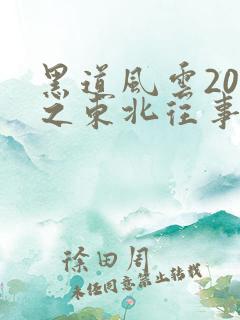 黑道风雲20
之东北往事
徐田周
未经同意禁止转载